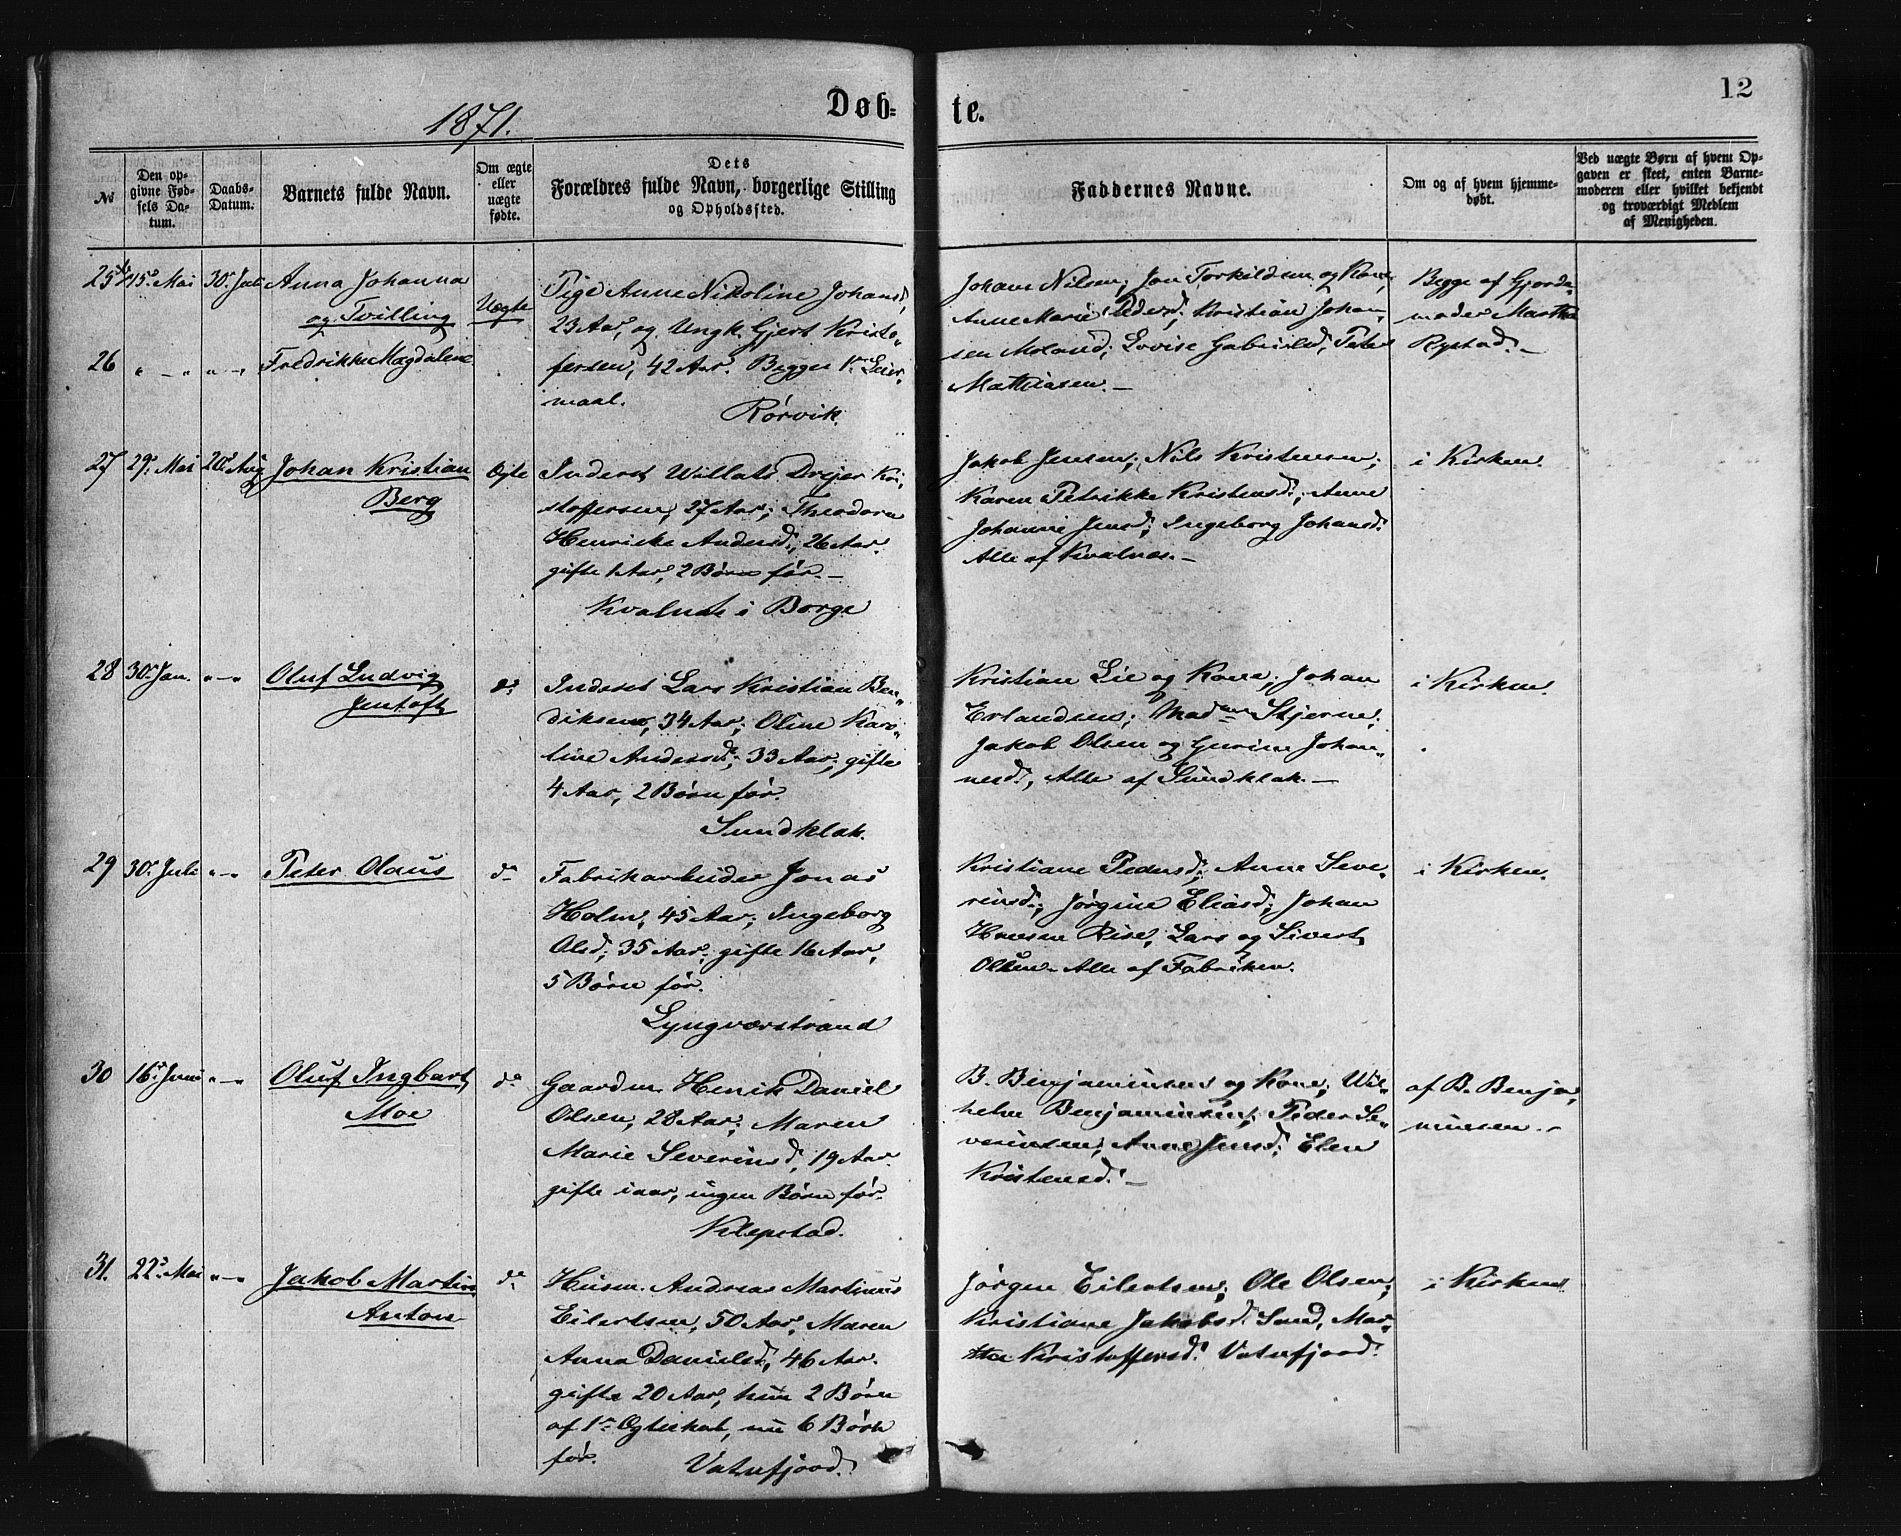 12
1871.
Døb-
te.
№
Den op-
givne Fød-
sels Da-
tum.
Daabs-
Datum.
Barnets fulde Navn.
Om ægte
eller
uægte
fødte.
Dets
Forældres fulde Navn, borgerlige Stilling
og Opholdssted.
Faddernes Navne.
Om og af hvem hjemme-
døbt.
Ved uægte Børn af hvem Op-
gaven er skeet, enten Barne-
moderen eller hvilket bekjendt
og troværdigt Medlem
af Menigheden.
25 15de Mai 30te Juli Anna Johanna
og Tvilling
26 " - " " - " Fredrikke Magdalene
Uægte
Pige Anne Nikoline Johansd,
23 Aar, og Ungk. Gjert Kristo-
fersen, 42 Aar. Begges 1ste Leier-
maal.
Rørvik.
Johan Nilsen; Jon Torkildsen og Kone,
Anne Marie Pedersd; Kristian Johan-
sen Moland; Lovise Gabrielsd, Peter
Mathiasen. -
Begge af Gjorde-
moder Martha
Rystad. -
27 29de Mai 20de Aug Johan Kristian
Berg
Ægte
Inderst Willats Drejer Kri-
stoffersen, 27 Aar; Theodora
Henricke Andersd, 26 Aar.
gifte 1 Aar, 2 Børn før. -
Kvalnæs i Borge
Jakob Jensen; Nils Kristensen;
Karen Petrikke Kristensd; Anne
Johanne Jensd; Ingeborg Johansd.
Alle af Kvalnæs. -
i Kirken.
28 30te Jan. " - " Oluf Ludvig
Jentoft
do
Inderst Lars Kristian Ben-
diksen, 34 Aar; Oline Karo-
line Andersd; 33 Aar; gifte
4 Aar, 2 Børn før.
Sundklak.
Kristian Lie og Kone; Johan
Erlandsen; Madme Stjerne;
Jakob Olsen og Gurine Johan-
nesd, Alle af Sundklak. -
i Kirken.
29 30te Juli " - " Peter Olaus
do
Fabrikarbeider Jonas
Holm, 45 Aar; Ingeborg
Olsd; 35 Aar; gifte 16 Aar,
5 Børn før.
Lyngværstrand
Kristiane Pedersd; Anne Seve-
rinsd; Jørgine Eliasd; Johan
Hansen Rise, Lars og Sivert
Olsen. Alle af Fabriken.
i Kirken.
30 16de Juni " - " Oluf Ingbart
Moe
do
Gaardm. Henik Daniel
Olsen, 28 Aar; Maren
Marie Severinsd, 19 Aar.
gifte iaar, ingen Børn før.
Klepstad.
B. Benjaminsen og Kone; Wil-
helm Benjaminsen; Peder Se-
verinsen; Anne Jensd; Elen
Kristensd. -
af B. Benja-
minsen. -
31. 22de Mai " - " Jakob Martin
Anton
do
Husm. Andreas Martinus
Eilertsen, 50 Aar, Maren
Anna Danielsd, 46 Aar.
gifte 20 Aar, hun 2 Børn
af 1ste Ægteskab, nu 6 Børn
før.
Vatnfjord.
Jørgen Eilertsen; Ole Olsen;
Kristiane Jakobsd. Sund, Mar-
tha Kristoffersd. Vatnfjord.
i Kirken